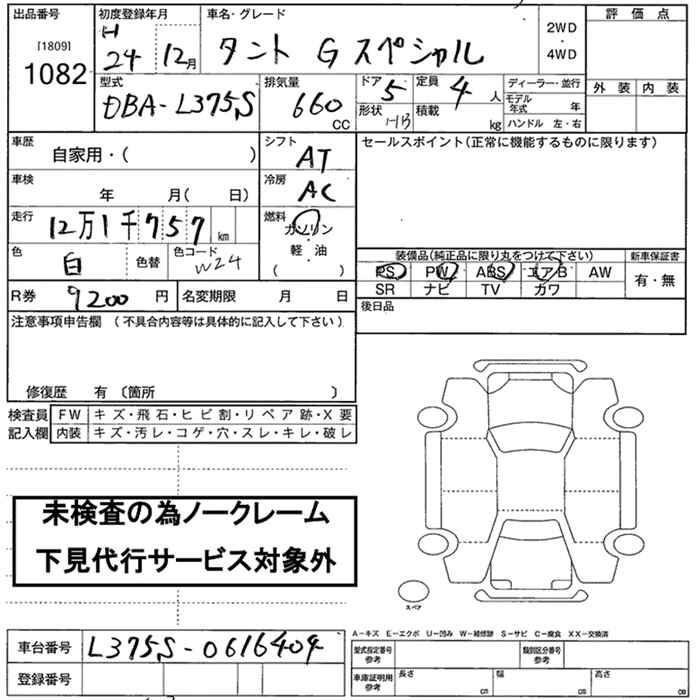 出品番号 初度登録年月 車名・グレード 評価点
[1809] H 2WD
1082 24 12月 タント G スペシャル ・
4WD
型式 排気量 ドア 定員 ディーラー・並行 外装 内装
DBA-L375S 660 CC 5 4 人 モデル年式 年
形状 H/B 積載 kg ハンドル 左・右
車歴 シフト セールスポイント(正常に機能するものに限ります)
自家用・( ) AT
車検 冷房
年 月( 日) AC
走行 燃料
12万1千757 km ガソリン
軽・油
( )
色 白 色替 色コード W24
装備品(純正品に限り丸をつけて下さい) 新車保証書
PS PW ABS エアB AW 有・無
SR ナビ TV カワ
R券 9200 円 名変期限 月 日 後日品
注意事項申告欄 (不具合内容等は具体的に記入して下さい)
修復歴 有 〔箇所 〕
検査員 FW キズ・飛石・ヒビ割・リペア跡・X要
記入欄 内装 キズ・汚レ・コゲ・穴・スレ・キレ・破レ
未検査の為ノークレーム
下見代行サービス対象外
スペア
A-キズ E-エクボ U-凹み W-補修跡 S-サビ C-腐食 XX-交換済
車台番号 L375S-0616404 型式指定番号 参考 類別区分番号 参考
登録番号 車庫証明用 参考 長さ cm 幅 cm 高さ cm